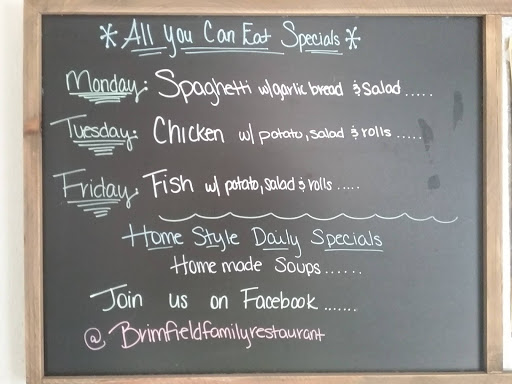 * All You Can Eat Specials *
Monday: Spaghetti w/garlic bread & Salad .....
Tuesday: Chicken w/ potato, salad & rolls .....
Friday: Fish w/ potato, salad & rolls .....
Home Style Daily Specials
Homemade Soups ......
Join us on Facebook .......
@ Brimfieldfamilyrestaurant